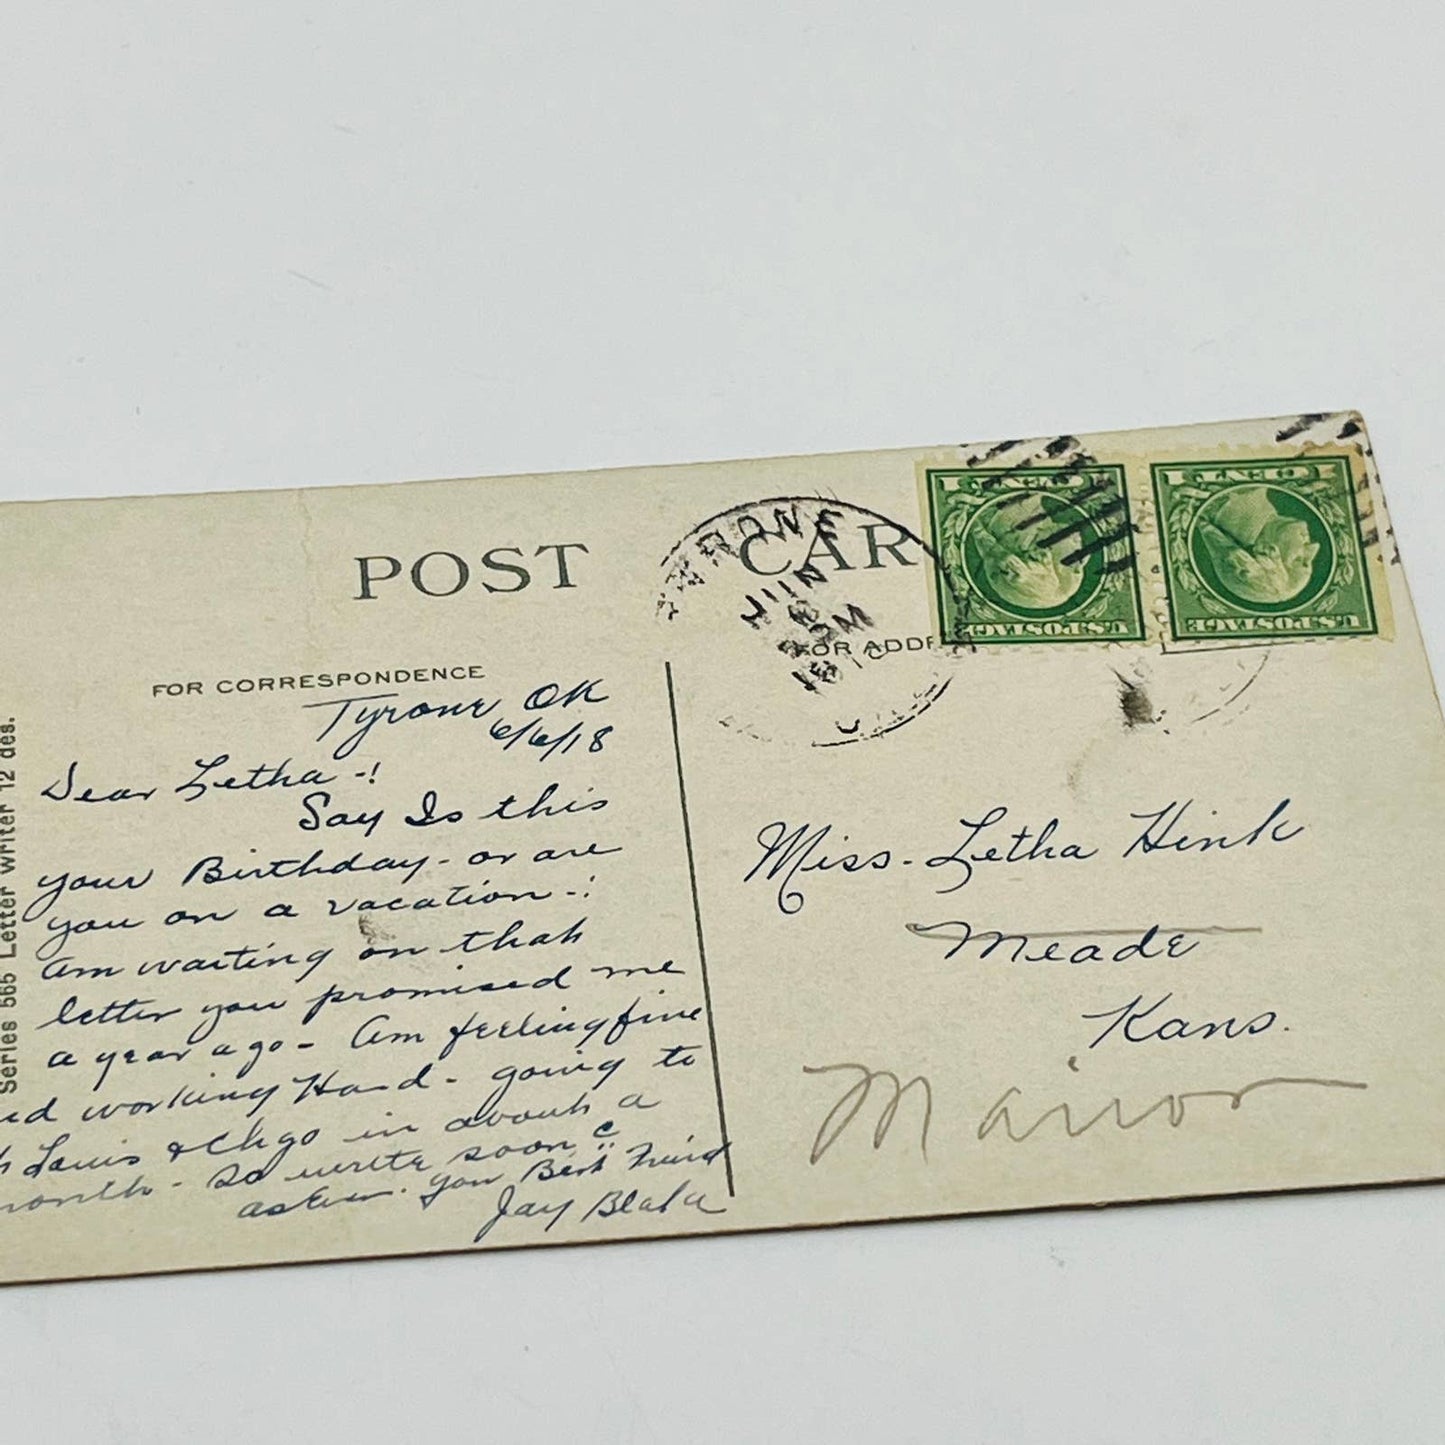 POST CAR
FOR CORRESPONDENCE
FOR ADDR
Series 565 Letter writer 12 des.
TYRONE
JUN
6
PM
1918
1 CENT 1
U.S. POSTAGE
1 CENT 1
U.S. POSTAGE
Tyrone OK
6/6/18
Dear Letha-!
Say Is this
your Birthday- or are
you on a vacation-!
am waiting on that
letter you promised me
a year ago- am feeling fine
working Hard- going to
Louis & Chgo in about a
month- So write soon
as Ever. your Best Friend
Jay Blake
Miss. Letha Hink
Meade
Kans.